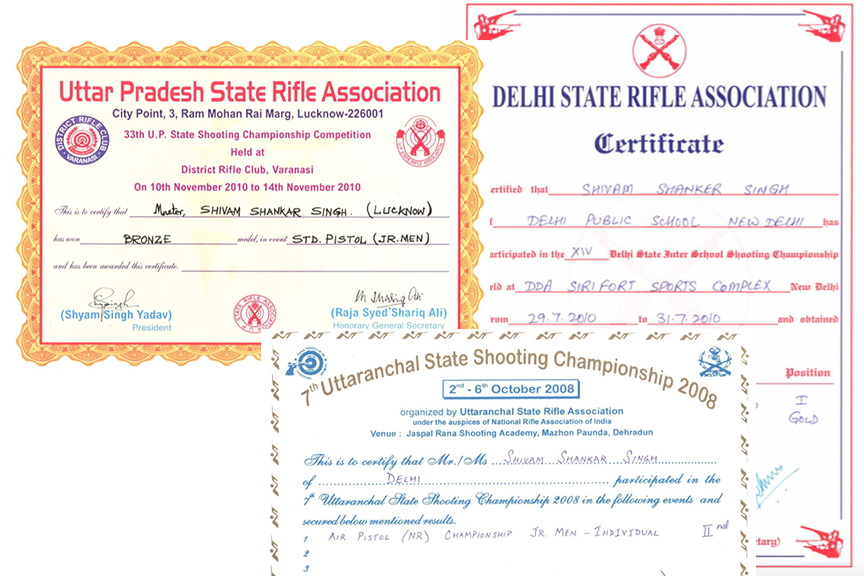 Uttar Pradesh State Rifle Association
City Point, 3, Ram Mohan Rai Marg, Lucknow-226001
33th U.P. State Shooting Championship Competition
Held at
District Rifle Club, Varanasi
On 10th November 2010 to 14th November 2010
DISTRICT RIFLE CLUB
VARANASI
This is to certify that Master, SHIVAM SHANKAR SINGH. (LUCKNOW)
has won BRONZE medal, in event STD. PISTOL (JR. MEN)
and has been awarded this certificate.
(Shyam Singh Yadav)
President
(Raja Syed Shariq Ali)
Honorary General Secretary
DELHI STATE RIFLE ASSOCIATION
Certificate
ertified that SHIVAM SHANKER SINGH
f DELHI PUBLIC SCHOOL NEW DELHI has
articipated in the XIV Delhi State Inter School Shooting Championship
eld at DDA SIRI FORT SPORTS COMPLEX New Delhi
rom 29.7.2010 to 31.7.2010 and obtained
Position
I
GOLD
etary)
7th Uttaranchal State Shooting Championship 2008
2nd - 6th October 2008
organized by Uttaranchal State Rifle Association
under the auspices of National Rifle Association of India
Venue : Jaspal Rana Shooting Academy, Mazhon Paunda, Dehradun
This is to certify that Mr./Ms SHIVAM SHANKAR SINGH
of DELHI participated in the
7th Uttaranchal State Shooting Championship 2008 in the following events and
secured below mentioned results.
1 AIR PISTOL (NR) CHAMPIONSHIP JR. MEN - INDIVIDUAL IInd
2
3